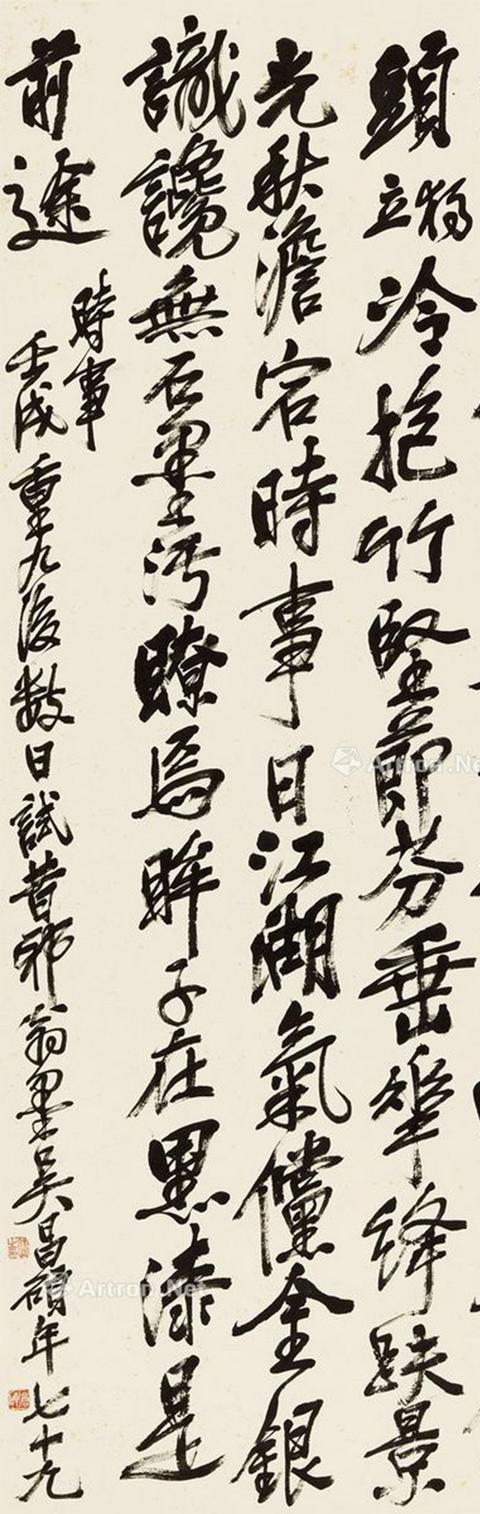 頭立獨冷抱竹堅節芬垂華絳趺景
光秋澹宕時事日江湖氣儻金銀
識讒無石墨污瞭焉眸子在黑漆是
前途
時事
壬戌重九後數日試昔邪翁墨吳昌碩年七十九
Artron.Net
Artron.Net